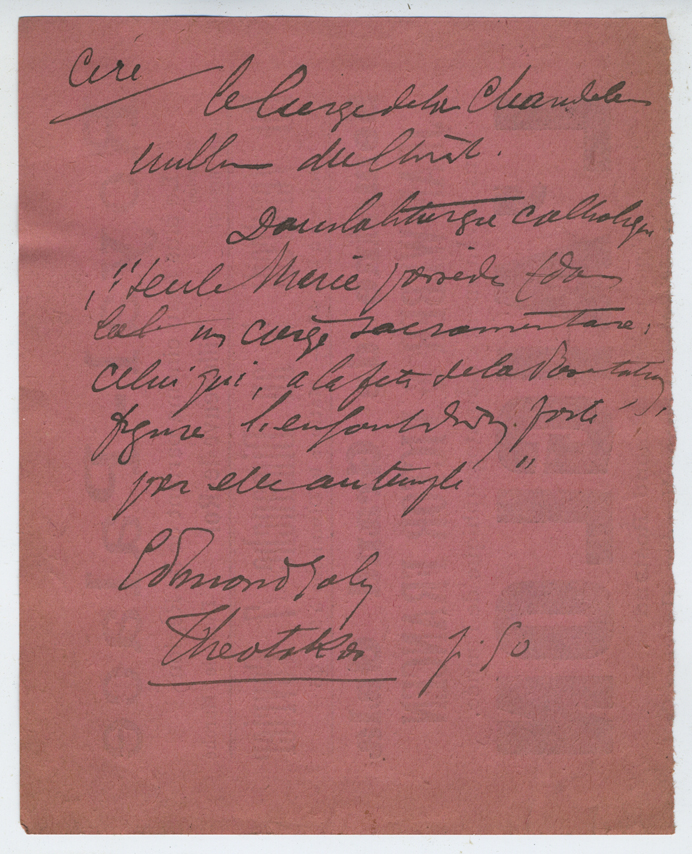 Cire
Le Cierge de la Chandeleur
du Christ.
Dans la liturgie catholique
"Seule Marie possède
un cierge sacramentaire,
celui qui, à la fête de la Présentation,
figure l'enfant porté
par elle au temple"
Edmond Joly
Theotokos p. 50